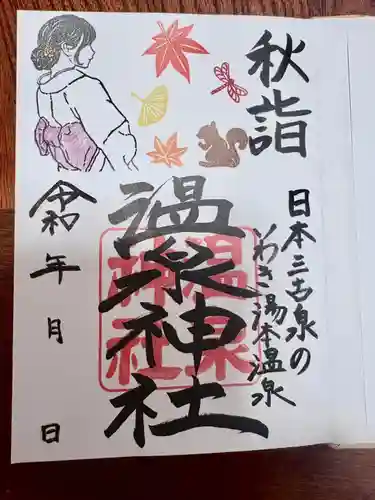 秋詣
日本三古泉の
いわき湯本温泉
温泉神社
温泉
神社
令和 年 月 日